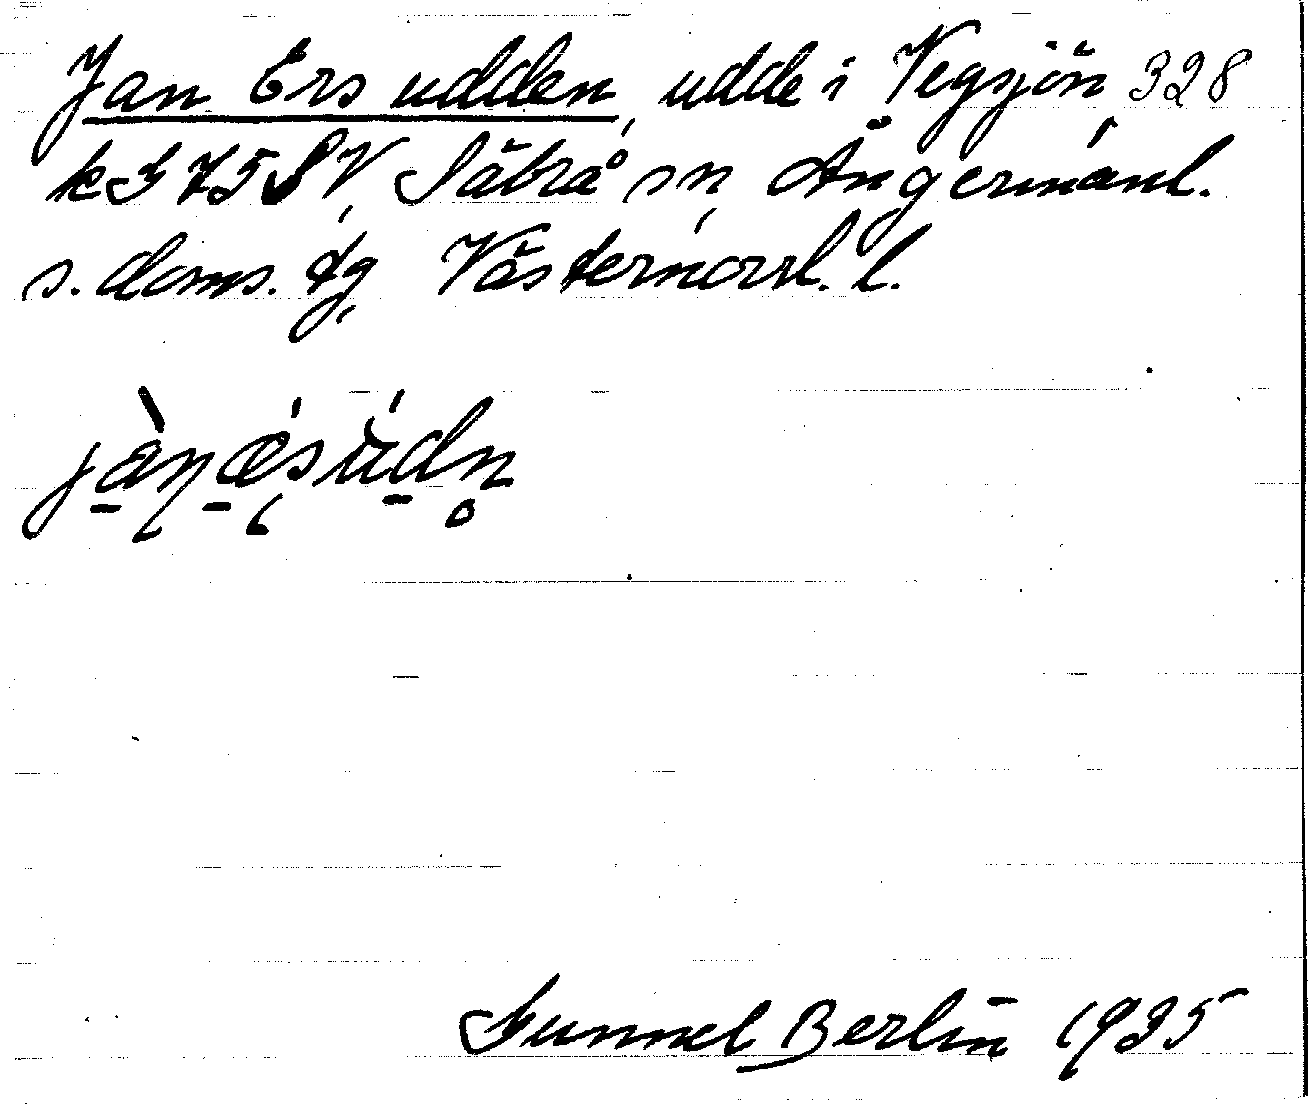 Jan Ers udden, udde i Vegsjön 328
k 3 75 SV, Säbrå sn, Ångermanl.
s. doms. tg, Västernorrl. l.
Gunnel Berlin 1935